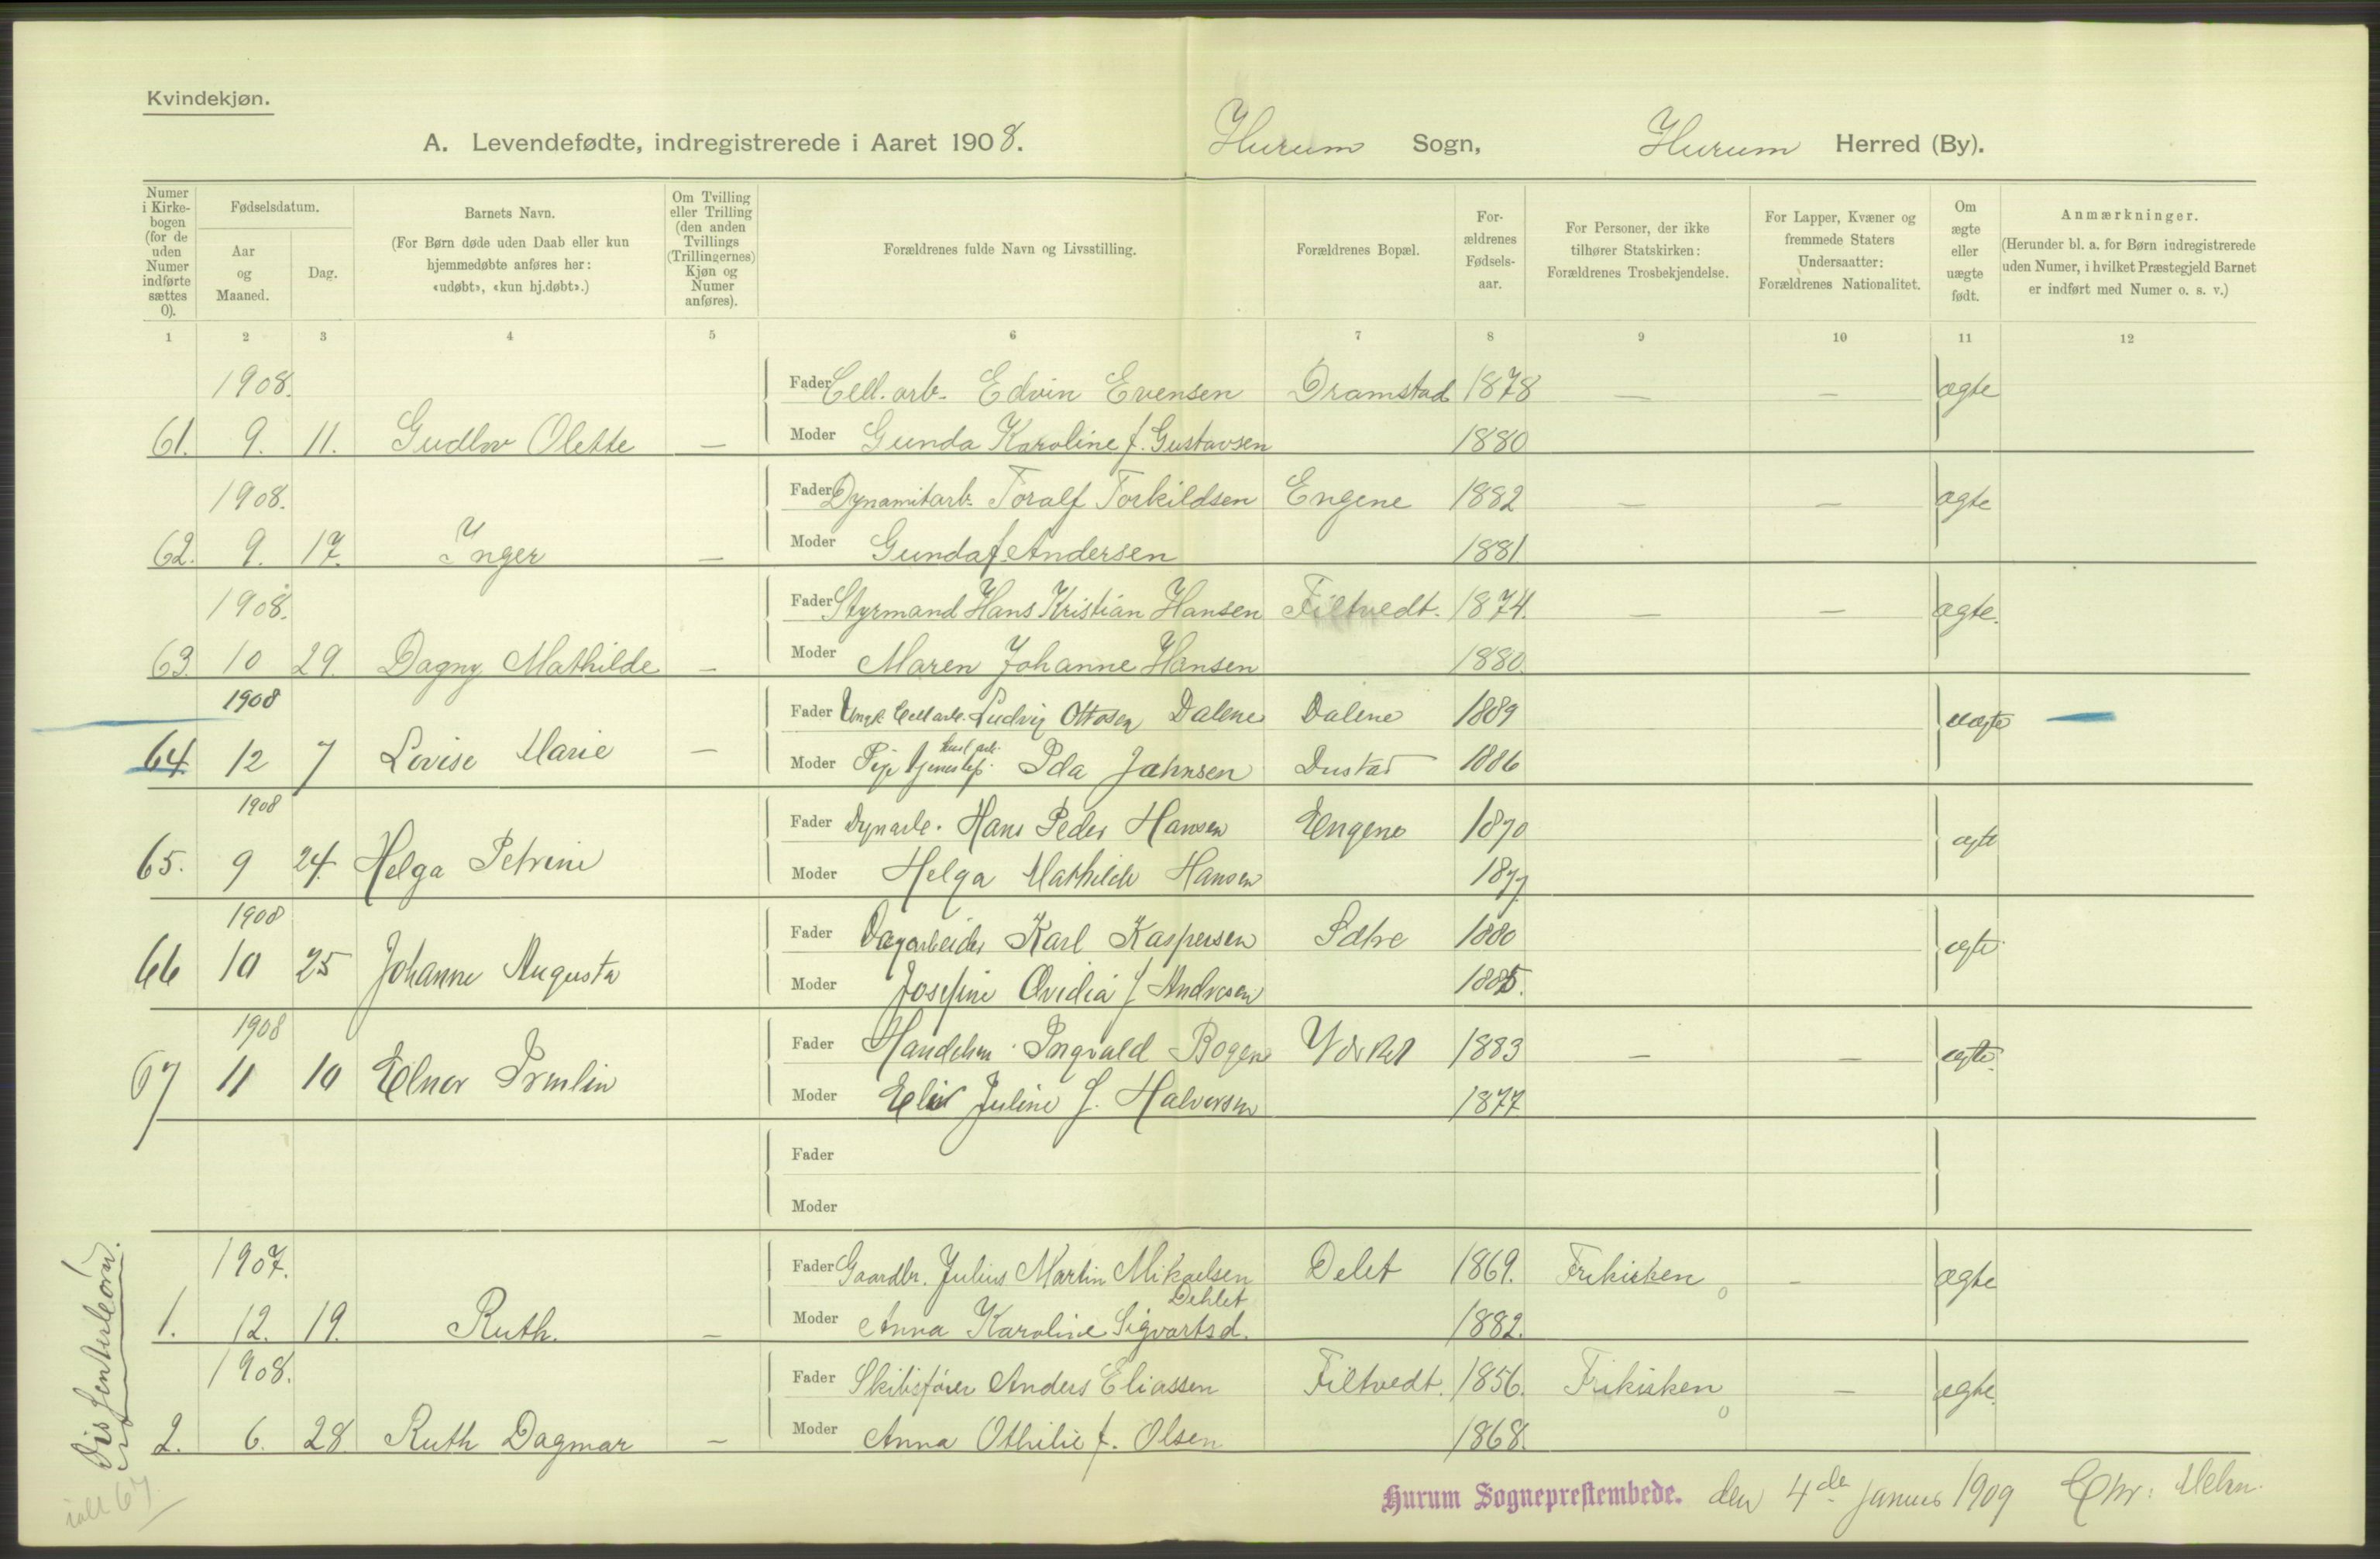 Kvindekjøn.
A. Levendefødte, indregistrerede i Aaret 1908. Hurum Sogn, Hurum Herred (By).
Numer i Kirkebogen (for de uden Numer indførte sættes 0).
Fødselsdatum.
Aar og Maaned.
Dag.
Barnets Navn.
(For Børn døde uden Daab eller kun hjemmedøbte anføres her: «udøbt», «kun hj.døbt».)
Om Tvilling eller Trilling (den anden Tvillings (Trillingernes) Kjøn og Numer anføres).
Forældrenes fulde Navn og Livsstilling.
Forældrenes Bopæl.
Forældrenes Fødselsaar.
For Personer, der ikke tilhører Statskirken: Forældrenes Trosbekjendelse.
For Lapper, Kvæner og fremmede Staters Undersaatter: Forældrenes Nationalitet.
Om ægte eller uægte født.
Anmærkninger.
(Herunder bl. a. for Børn indregistrerede uden Numer, i hvilket Præstegjeld Barnet er indført med Numer o. s. v.)
1 2 3 4 5 6 7 8 9 10 11 12
1908. Fader Cell. arb. Edvin Evensen Dramstad 1878 — — ægte
61. 9. 11. Gudlov Olette — Moder Gunda Karoline f. Gustavsen 1880
1908. Fader Dynamitarb. Toralf Torkildsen Engene 1882 — — ægte
62. 9. 17. Inger — Moder Gunda f. Andersen 1881.
1908. Fader Styrmand Hans Kristian Hansen Filtvedt. 1874. — — ægte.
63. 10 29. Dagny Mathilde — Moder Maren Johanne Hansen 1880.
1908 Fader Ungk. Cellarb. Ludvig Ottosen Dalene Dalene 1889 uægte
64. 12 7 Lovise Marie — Moder Pige Ida Jahnsen 1886
1908 Fader Dynarb. Hans Peder Hansen Engene 1870 ægte
65. 9 24. Helga Petrine Moder Helga Mathilde Hansen 1877
1908 Fader Dagarbeider Karl Kaspersen Sætre 1880 ægte
66 10 25 Johanne Augusta Moder Josefine Ovidia f Andresen 1885.
1908 Fader Handelsm. Ingvald Bogen 1883 — — ægte.
67 11 10 Elnor Moder Juline f. Halvorsen 1877
Fader
Moder
1907. Fader Gaardbr. Julius Martin Mikaelsen Delet 1869. Frikirken — ægte
Dehlet
1. 12. 19. Ruth. — Moder Anna Karoline Sigvartsd. 1882.
1908. Fader Skibsfører Anders Eliassen Filtvedt. 1856. Frikirken — ægte.
2. 6. 28 Ruth Dagmar — Moder Anna Othilie f. Olsen 1868.
ialt 67
Hurum Sogneprestembede. den 4de januar 1909 Chr: